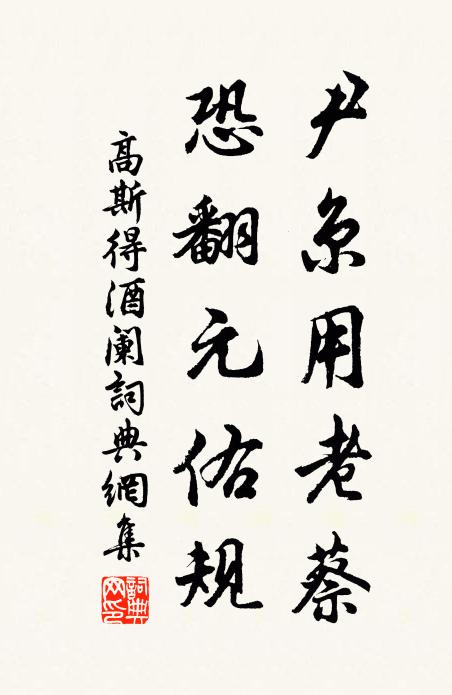 尹京用老蔡
恐翻元佑规
高斯得酒阑詞典網集
詞典網印